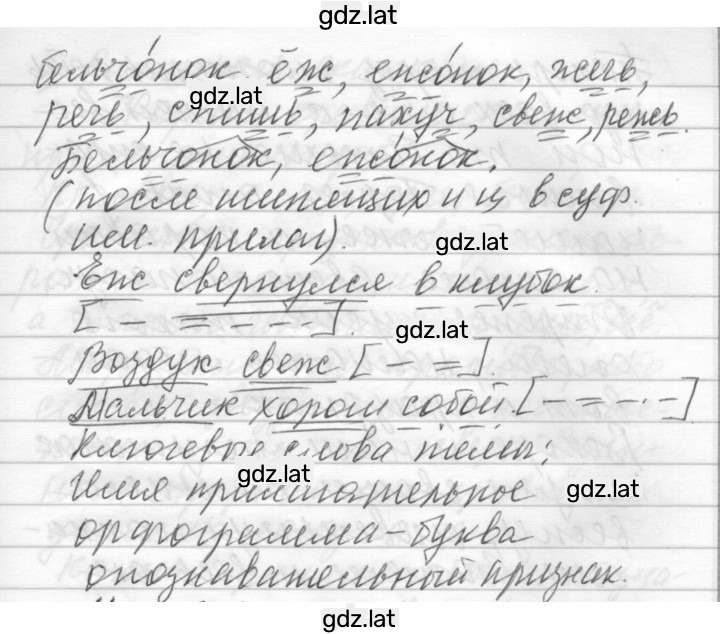 gdz.lat
Бельчо́нок ёж, ежо́нок, жечь,
gdz.lat
речь, спишь, пахуч, свеж, режь.
Бельчонок, ежо́нок.
(после шипящих и ц в суф.
им. прилаг). gdz.lat
Ёж свернулся в клубок.
[ – = – · – ]. gdz.lat
Воздух свеж [ – = ].
Мальчик хорош собой. [ – = – · – ]
Ключевые слова темы:
gdz.lat
Имя прилагательное gdz.lat
орфограмма – буква
опознавательный признак.
gdz.lat